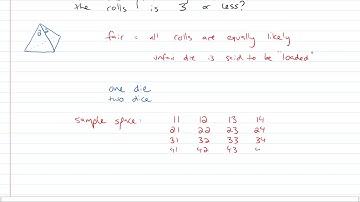 the rolls is 3 or less?
fair = all rolls are equally likely
unfair die is said to be "loaded"
one die
two dice
sample space: 11 12 13 14
21 22 23 24
31 32 33 34
41 42 43